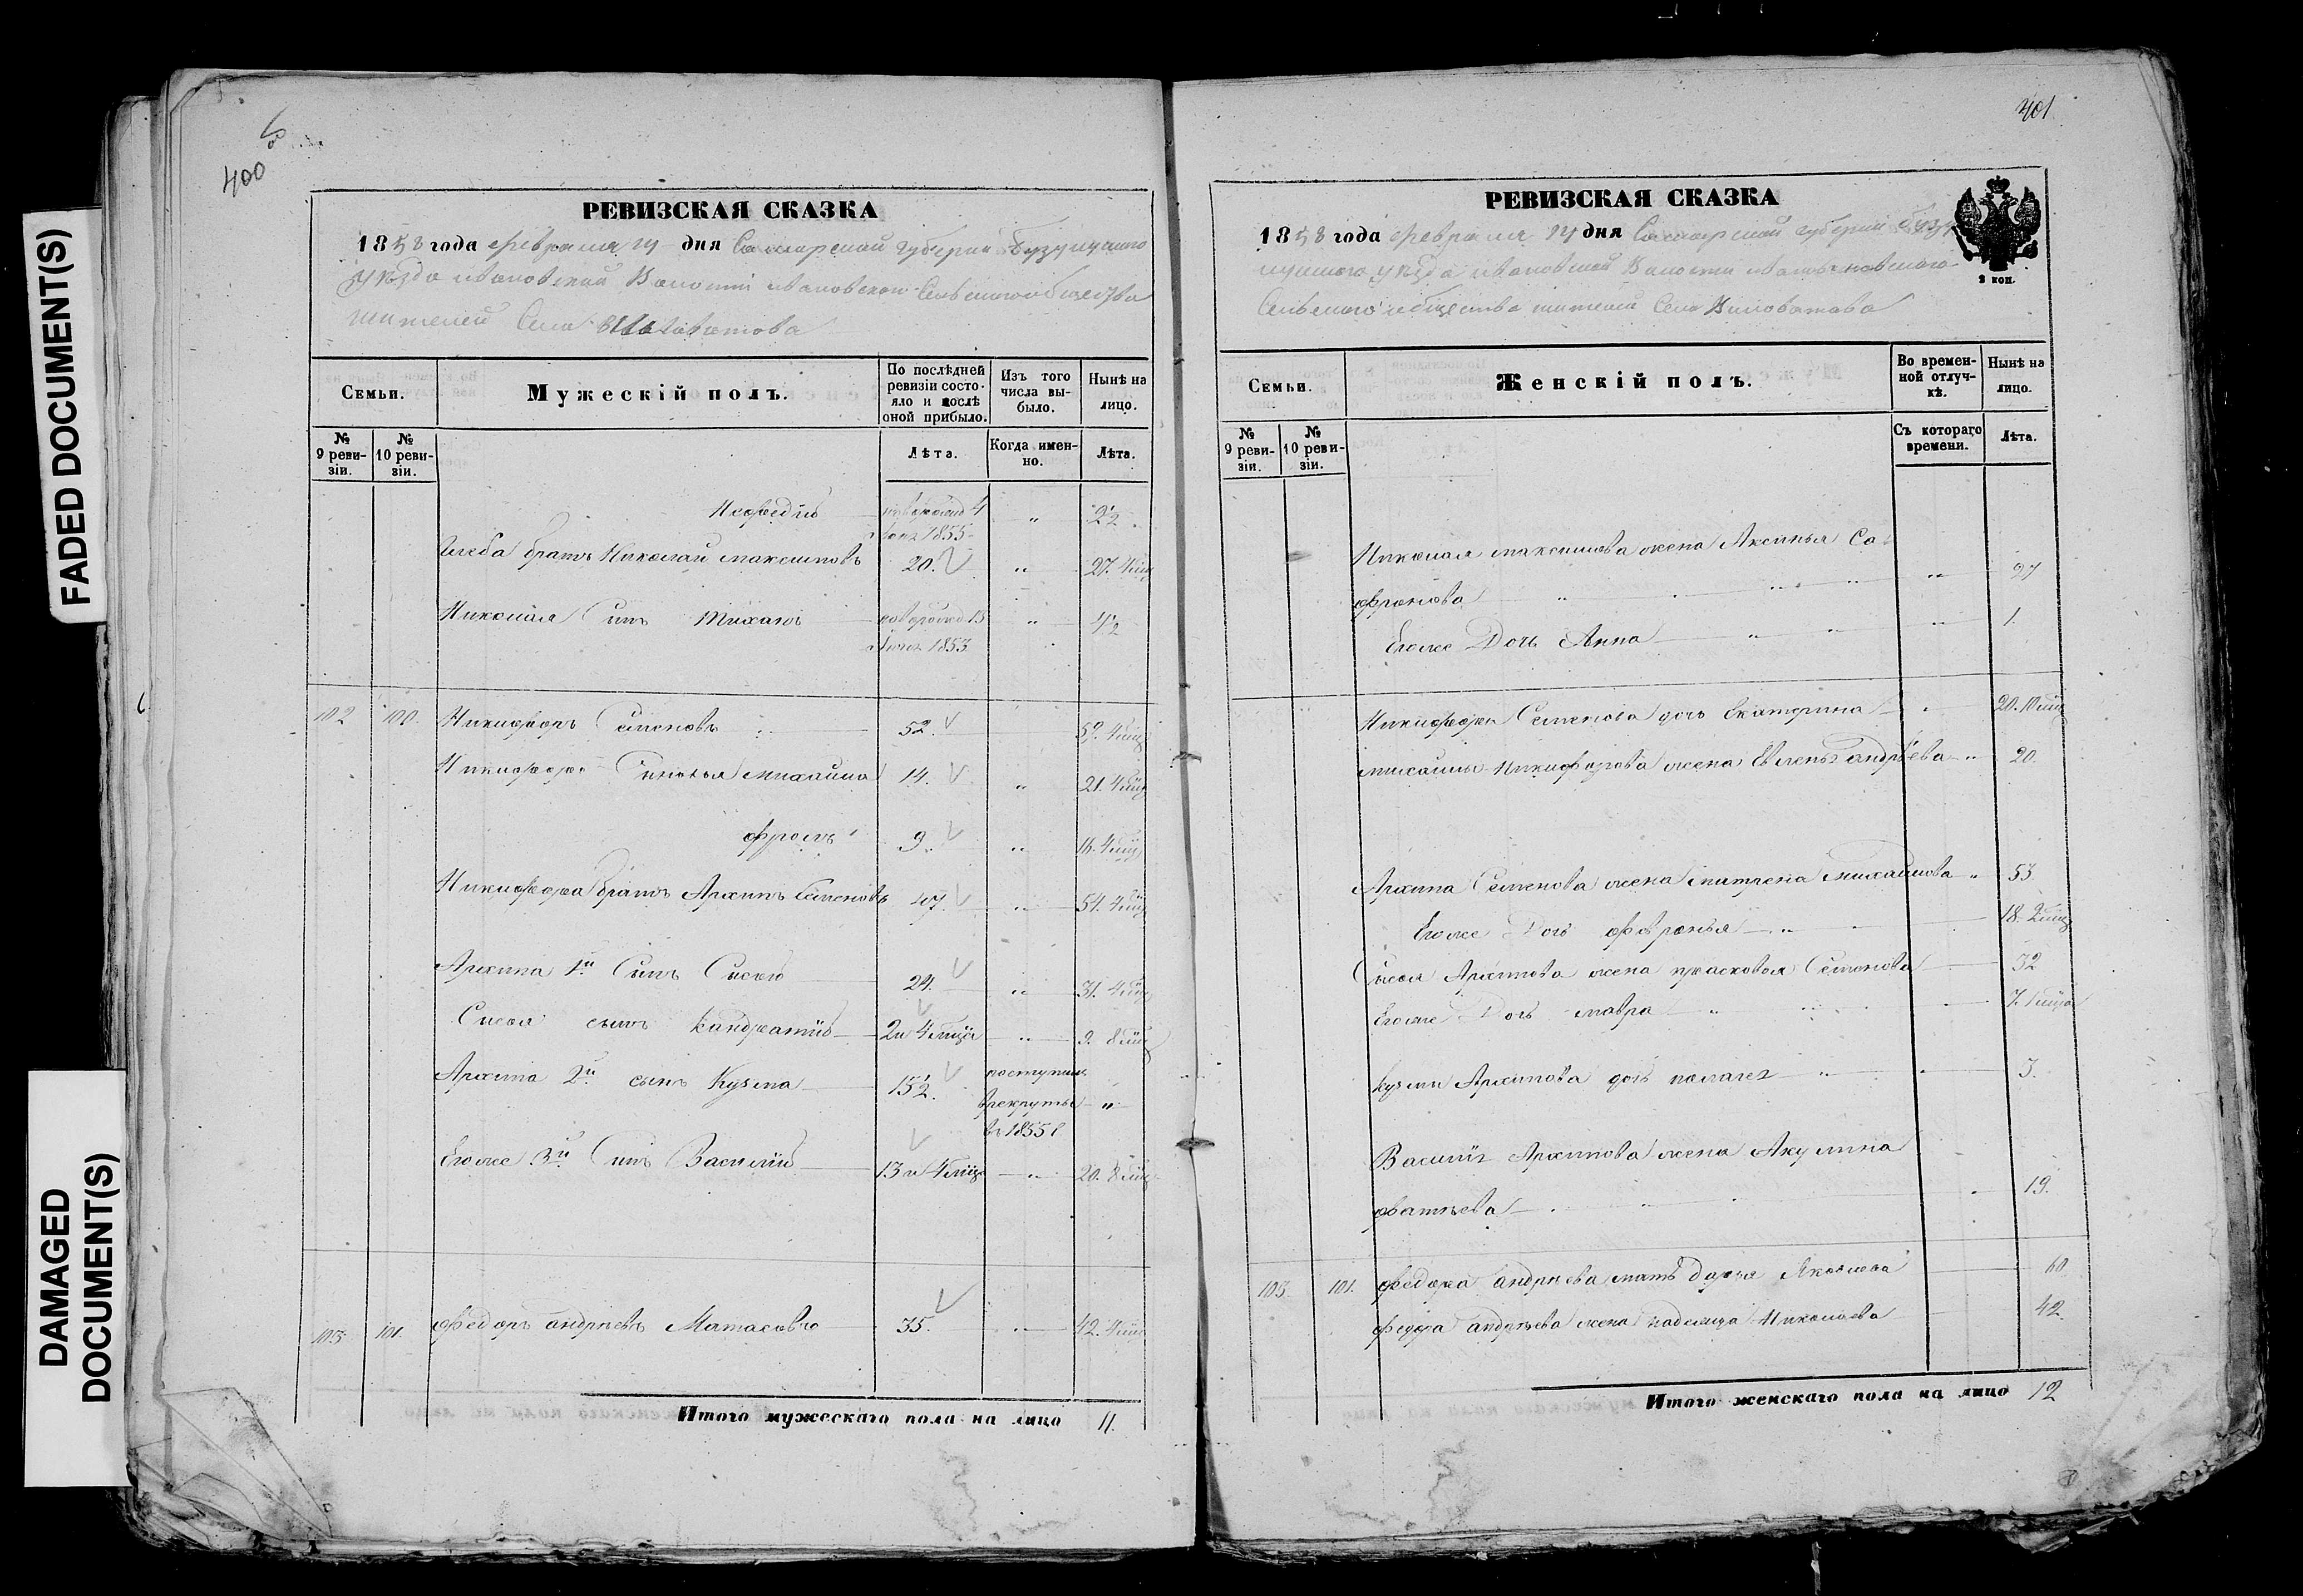 FADED DOCUMENT(S)
DAMAGED
DOCUMENT(S)
400
РЕВИЗСКАЯ СКАЗКА
1858 года февраля 14 дня Самарской губернии Бузулукского
уѣзда Ивановской Волости Ивановскои Сельского общества
жителей Села
Семьи.
Мужескій полъ.
По послѣдней ревизіи состояло и послѣ оной прибыло.
Изъ того числа выбыло.
Нынѣ на лицо.
№ 9 ревизіи.
№ 10 ревизіи.
Лѣта.
Когда именно.
Лѣта.
1855
братъ Николай Максимовъ 20. " 27. 4 мѣц
Николая Сынъ " 4½
1853
102 100. Никифоръ Семеновъ 52. 59. 4 мѣц
Никифора Сыновья Михайла 14. " 21. 4 мѣц
Фролъ 9. " 16. 4 мѣц
Никифора братъ Архипъ Семеновъ 47. " 54. 4 мѣц
Архипа 1й Сынъ Сысой 24. " 31. 4 мѣц
Сысоя сынъ Кандратій 2 и 4 мѣца " 9. 8 мѣц
Архипа 2й сынъ Кузьма 15½. поступилъ
в рекруты "
въ 1855 г
Егоже 3й Сынъ Василий 13 и 4 мѣц " 20. 8 мѣц
103 101. Федоръ Андреевъ 35. " 42. 4 мѣц
Итого мужескаго пола на лицо 11.
401
РЕВИЗСКАЯ СКАЗКА
2 коп.
1858 года февраля 14 дня Самарской губернии Бузу
лукского уѣзда Ивановской Волости
Сельского общества жителей Села Виловатова
Семьи.
Женскій полъ.
Во временной отлучкѣ.
Нынѣ на лицо.
№ 9 ревизіи.
№ 10 ревизіи.
Съ котораго времени.
Лѣта.
Николая Максимова жена Аксинья Са
фронова " 27
Егоже Дочь Анна " 1.
Никифора Семенова дочь Екатерина 20. 10 мѣц
Михайлы Никифорова жена Андрѣева " 20.
Архипа Семенова жена Матрена Михайлова " 53
Егоже Дочь Февронья 18. 2 мѣц
Сысоя Архипова жена Прасковья Семенова 32
Егоже Дочь Мавра 7. 1 мѣца
Кузьмы Архипова дочь 3.
Василия Архипова жена Акулина
19.
103. 101. Федора Андреева мать Дарья Яковлева 60
Федора Андреева жена Надежда Николаева 42.
Итого женскаго пола на лицо 12